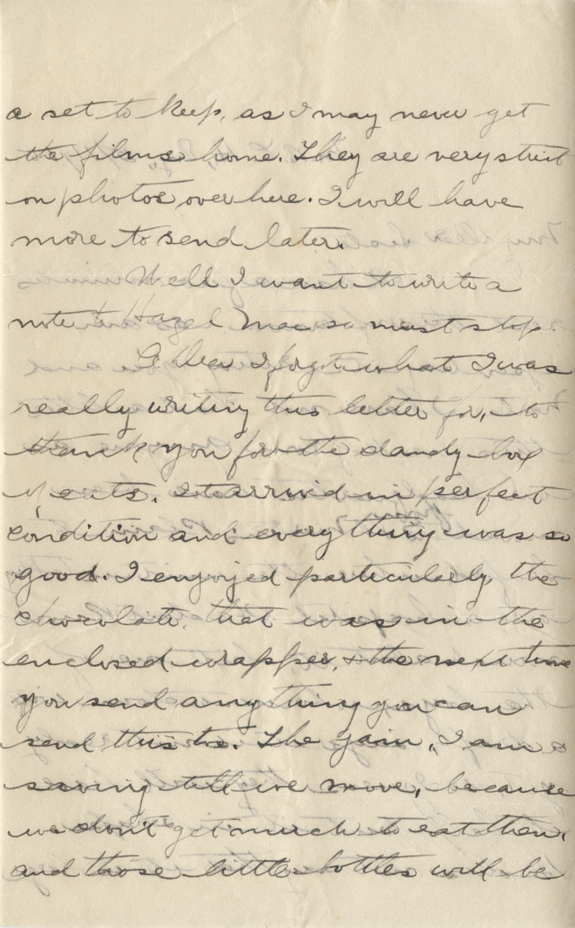 a set to keep, as I may never get
the films home. They are very strict
on photos over here. I will have
more to send later.
Well I want to write a
note to Hazel Mae so must stop.
I forgot what I was
really writing this letter for, to
thank you for the dandy box
of eats. It arrived in perfect
condition and every thing was so
good. I enjoyed particularly the
chocolate that was in the
enclosed wrapper, & the next time
you send any thing you can
send this to. The jam, I am
saving till we move, because
we don't get much to eat then,
and those little bottles will be